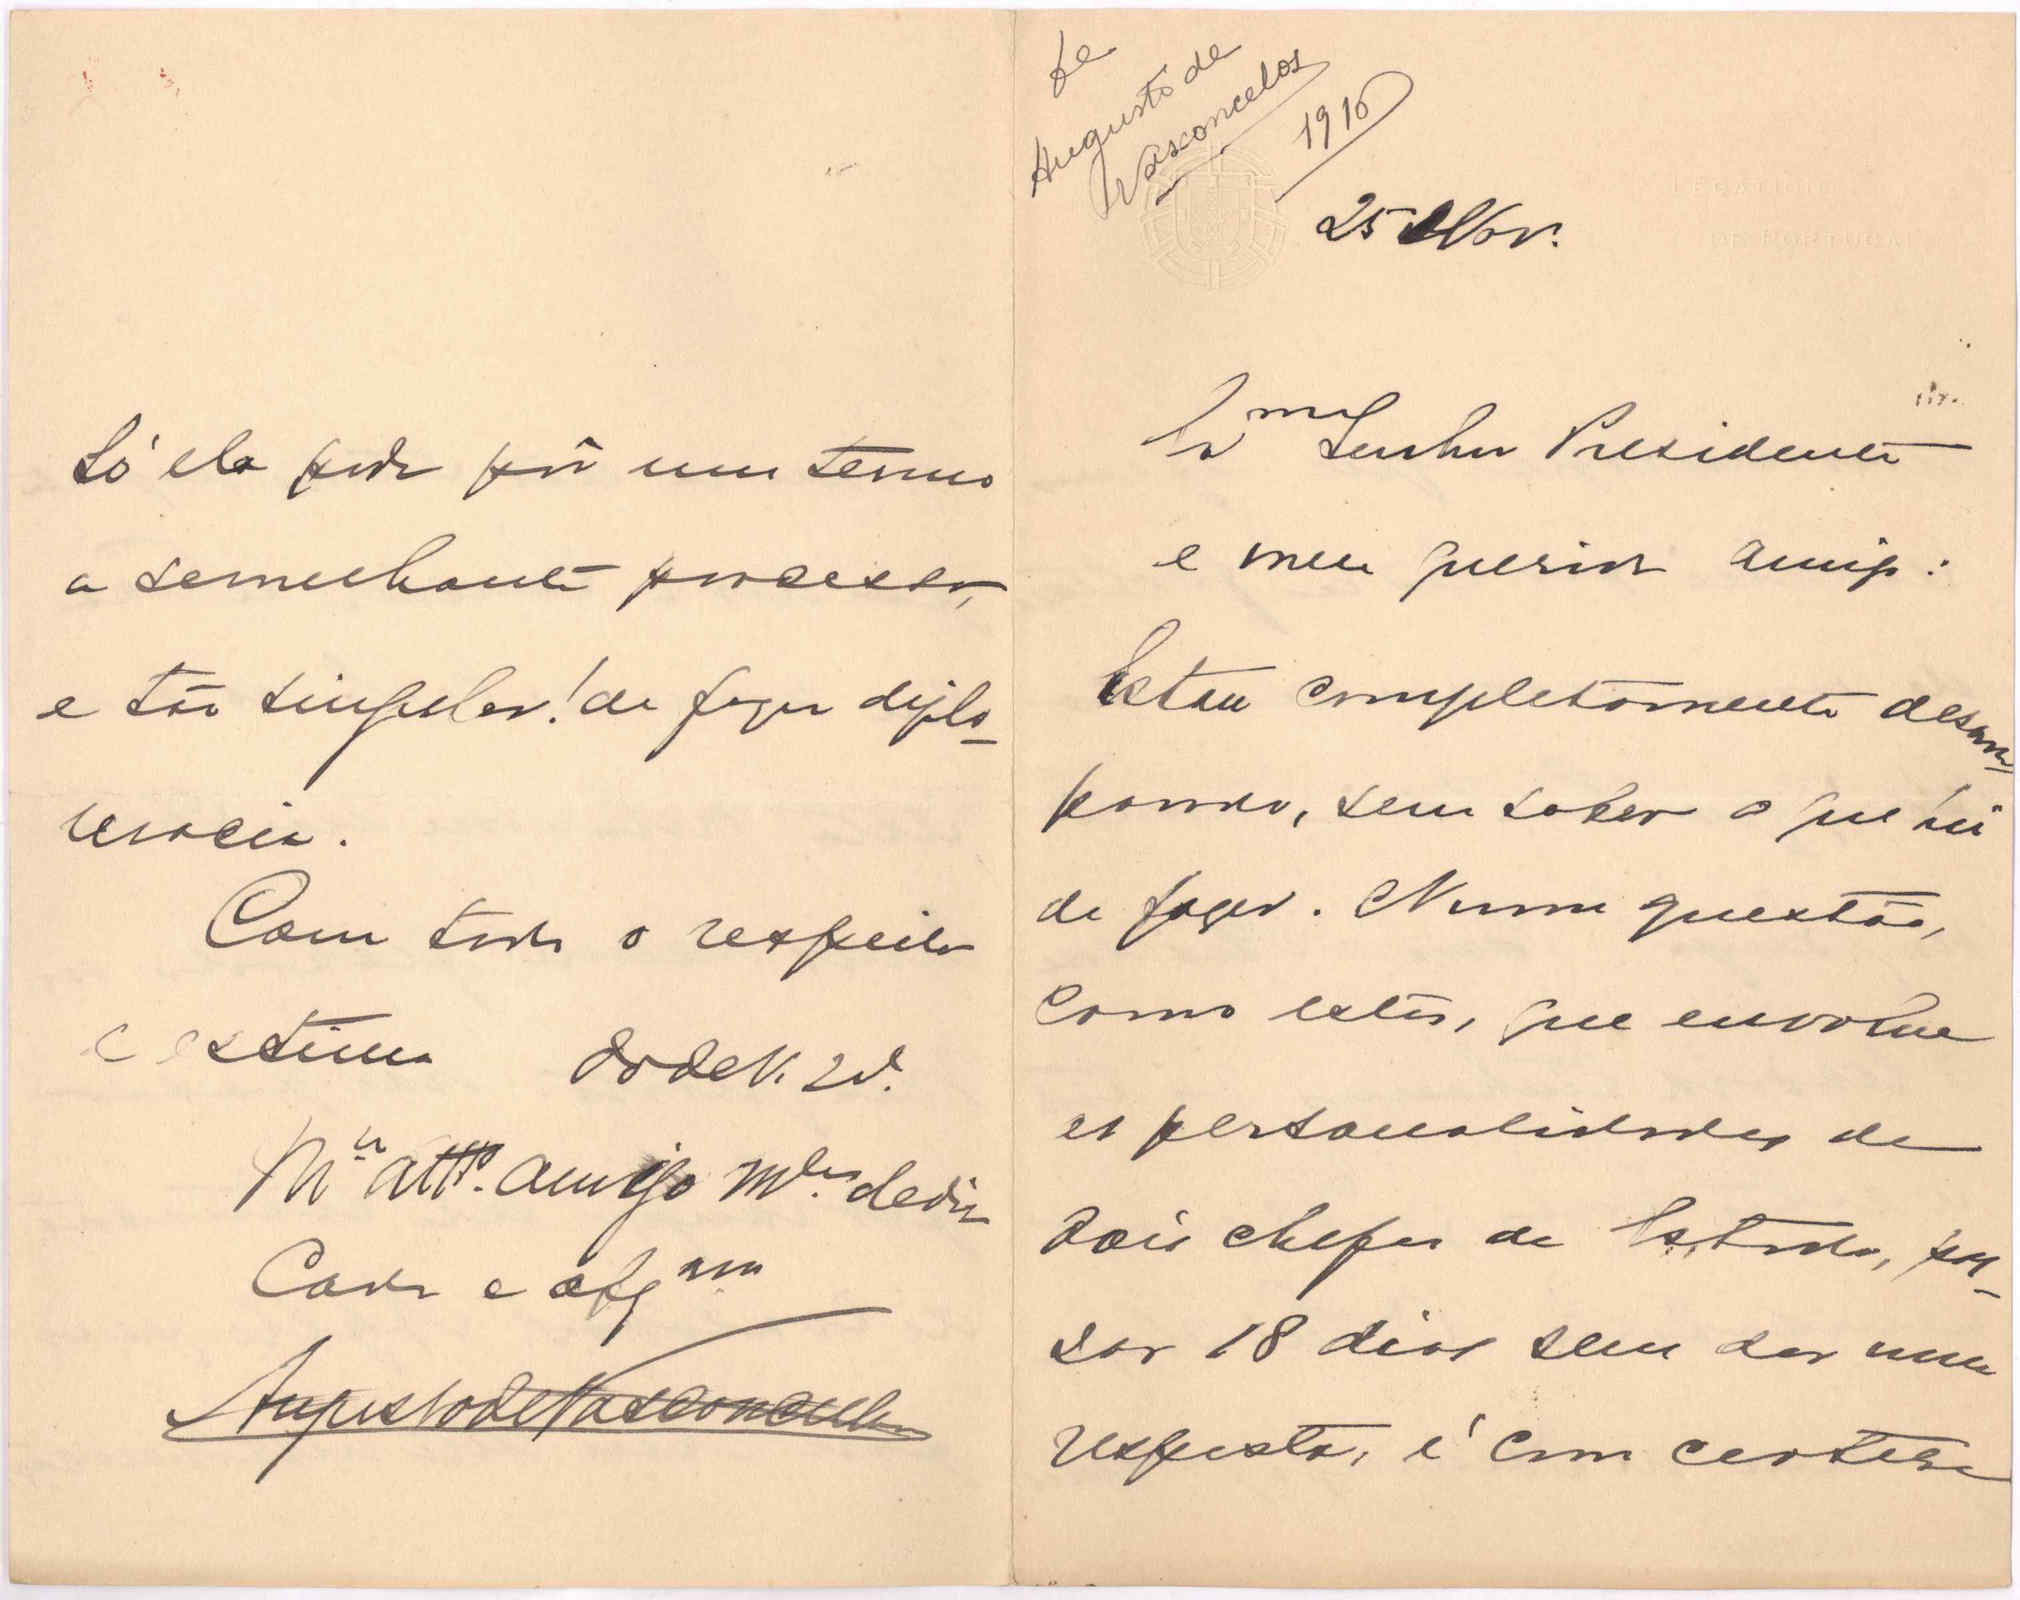 de
Augusto de
Vasconcelos
1916
LEGATION
DE PORTUGAL
25 Nov.
Ex^mo Senhor Presidente
e meu querido amigo:
Estou completamente desam-
parado, sem saber o que hei
de fazer. Numa questão,
como esta, que envolve
as personalidades de
dois chefes de Estado, pas-
sar 18 dias sem dar uma
resposta, é com certeza
Só ela pode pôr um termo
a semelhante processo,
e tão singular! de fazer diplo-
macia.
Com todo o respeito
e estima do de V. Ex^a.
M^to att^o. amigo m^to dedi
cado e obg^mo
Augusto de Vasconcellos